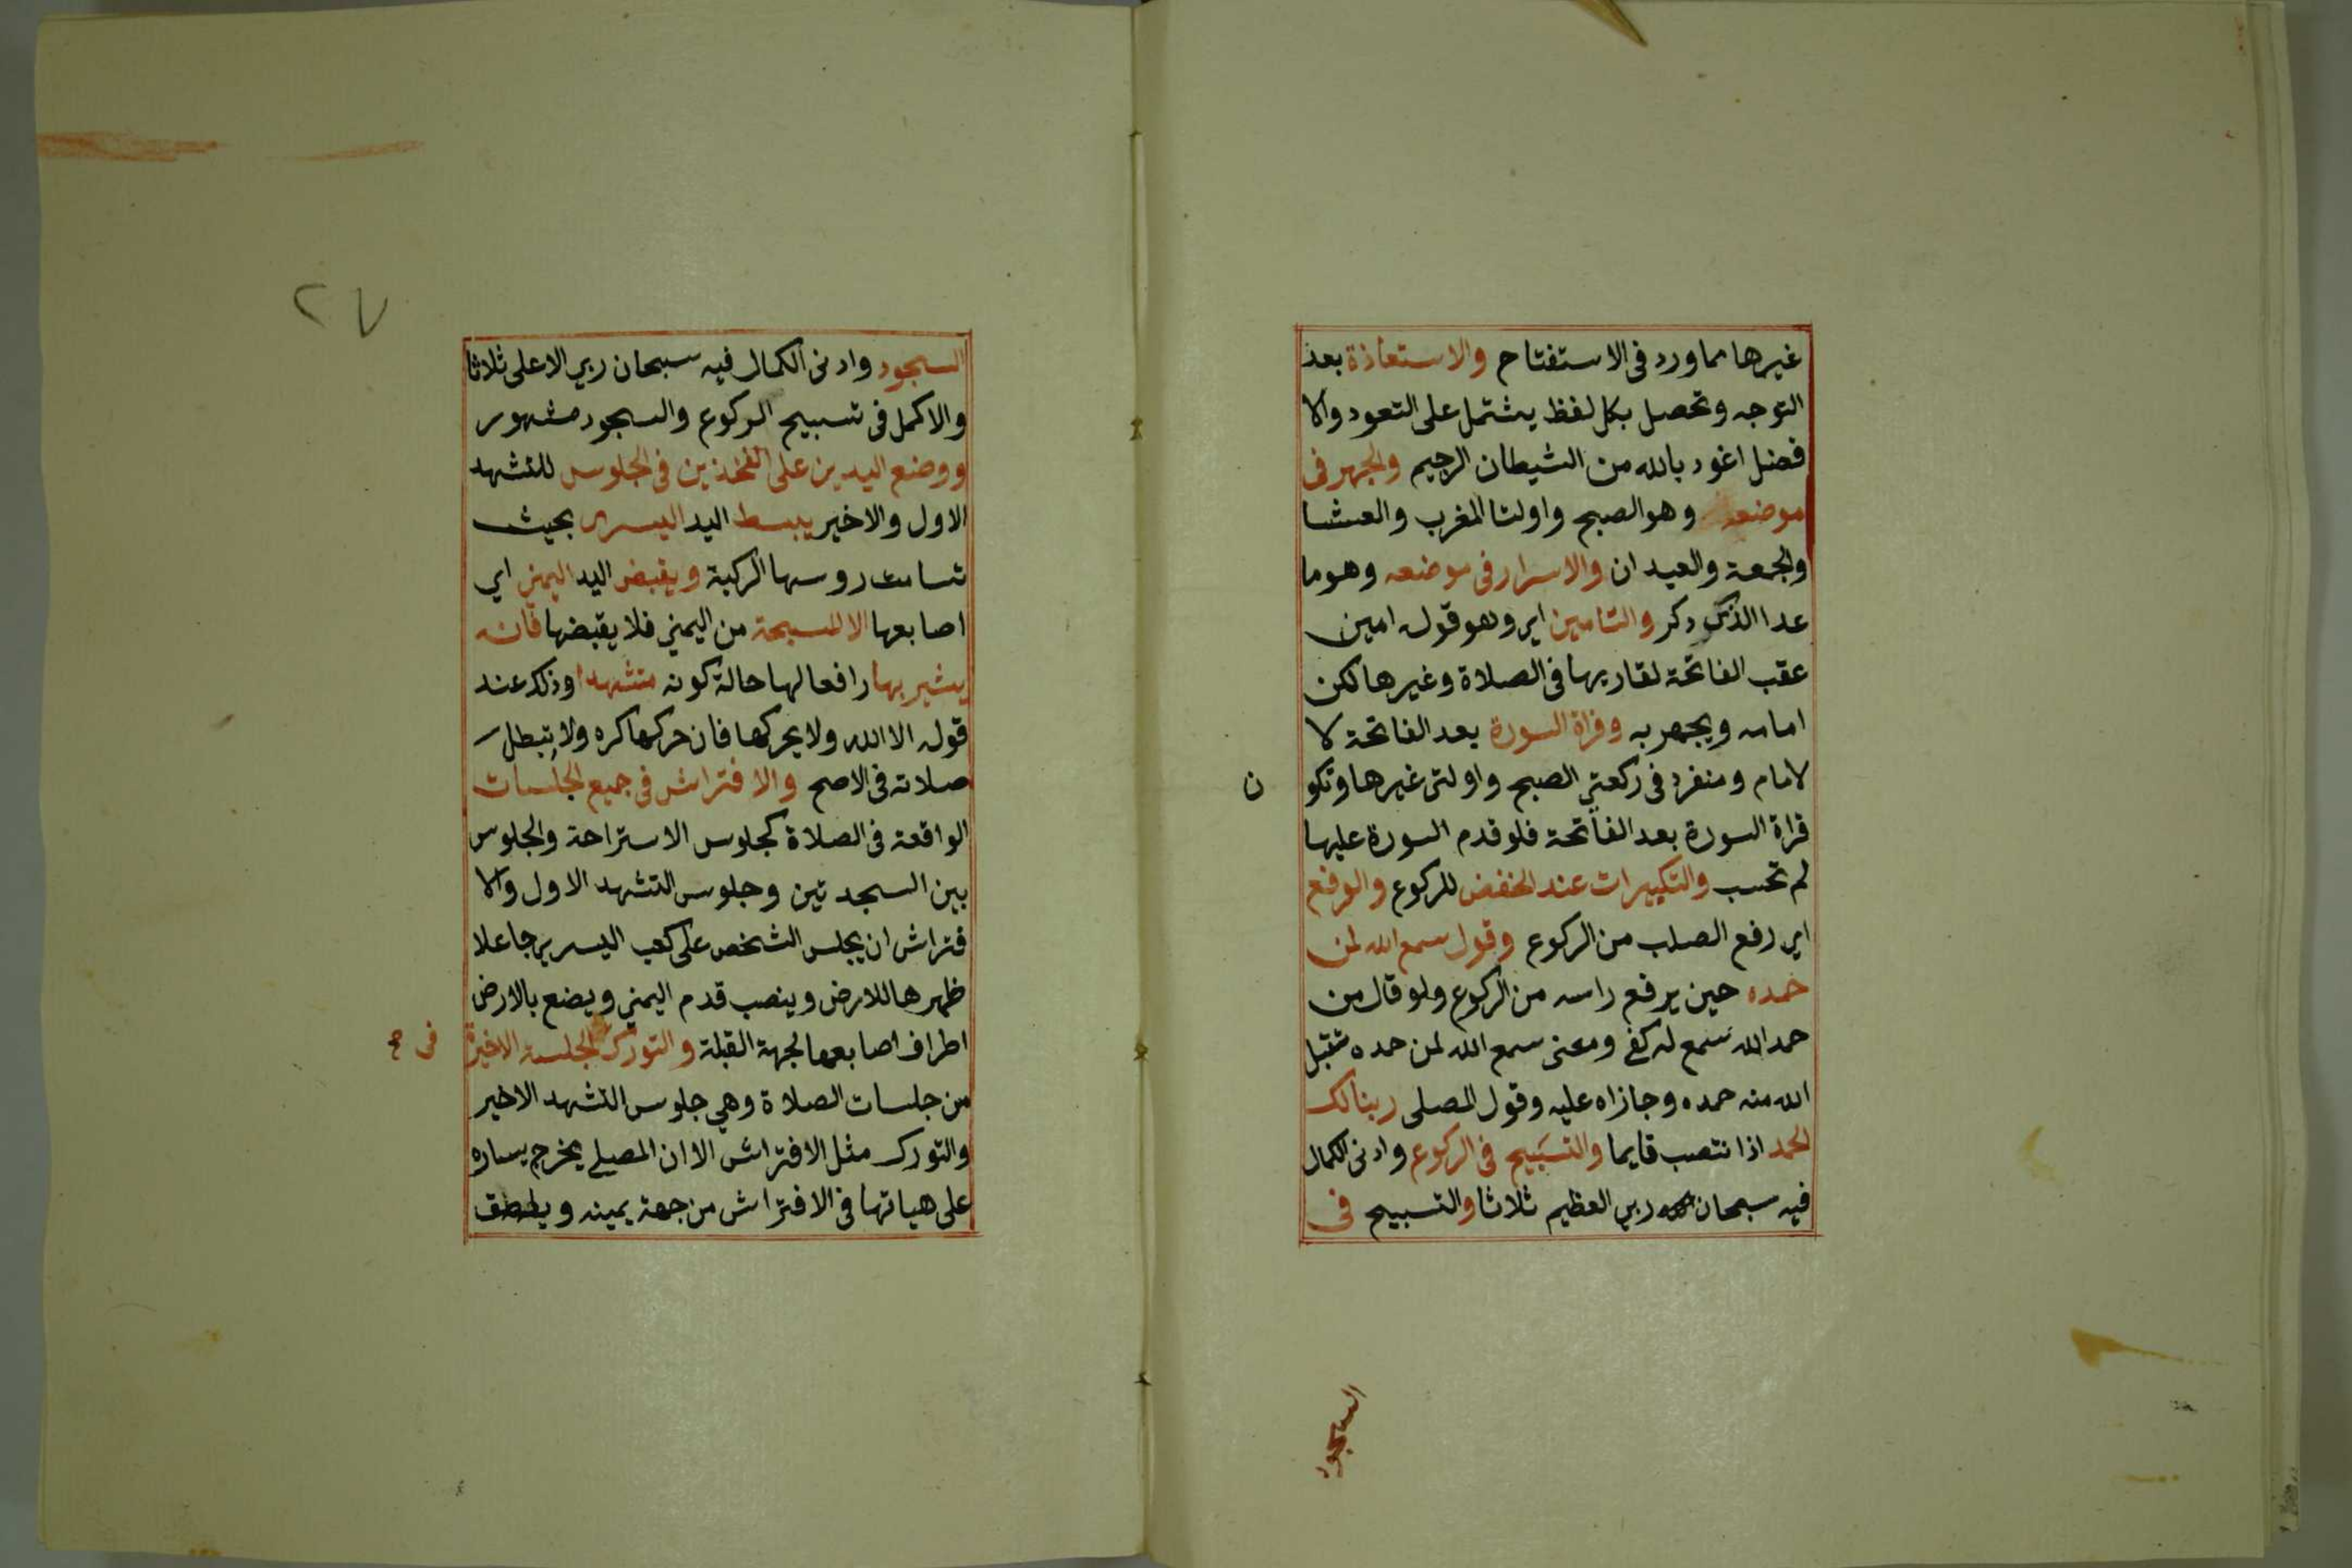 غيرها مما ورد فى الاستفتاح والاستعاذة بعد
التوجه وتحصل بكل لفظ يشتمل على التعود والا
فضل اغود بالله من الشيطان الرجيم والجهر فى
موضعه وهو الصبح واولتا المغرب والعشا
والجمعة والعيدان والاسرار فى موضعه وهو ما
عدا الذى دكر والتامين اى وهو قول امين
عقب الفاتحة لقاريها فى الصلاة وغيرها لكن
امامه ويجهر به وقراة السورة بعد الفاتحة لا
لامام ومنفرد فى ركعتي الصبح واولتى غيرها وتكو
ن
قراة السورة بعد الفاتحة فلو قدم السورة عليها
لم تحسب والتكبيرات عند الخفض للركوع والرفع
اي رفع الصلب من الركوع وقول سمع الله لمن
حمده حين يرفع راسه من الركوع ولو قال من
حمد الله سمع له كفى ومعنى سمع الله لمن حمده تقبل
الله منه حمده وجازاه عليه وقول المصلى ربنا لك
الحمد اذا نتصب قايما والتسبيح فى الركوع وادنى الكمال
فيه سبحان ربي العظيم ثلاثا والتسبيح فى
السجود
٢٧
السجود وادنى الكمال فيه سبحان ربي الاعلى ثلاثا
والاكمل فى تسبيح الركوع والسجود مشهور
ووضع اليدين على الفخذين فى الجلوس للتشهد
الاول والاخير يبسط اليد اليسرى بحيث
تسامت روسها الركبة ويقبض اليد اليمنى اي
اصابعها الا المسبحة من اليمني فلا يقبضها فانه
يشير بها رافعا لها حالة كونه متشهدا وذلك عند
قوله الا الله ولا يحركها فان حركها كره ولا تبطل
صلاته فى الاصح والافتراش فى جميع الجلسات
الواقعة فى الصلاة كجلوس الاستراحة والجلوس
بين السجدتين وجلوس التشهد الاول والا
فتراش ان يجلس الشخص على كعب اليسرى جاعلا
ظهرها للارض وينصب قدم اليمني ويضع بالارض
اطراف اصابعها لجهة القبلة والتورك الجلسة الاخيرة
فى صح
من جلسات الصلاة وهي جلوس التشهد الاخير
والتورك مثل الافتراش الا ان المصلي يخرج يساره
على هياتها فى الافتراش من جهة يمينه ويلصق